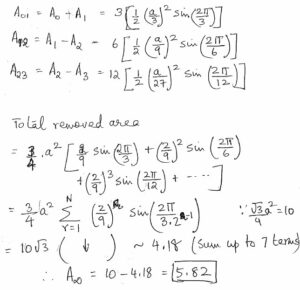 A₀₁ = A₀ + A₁ = 3 [ ½ (a/3)² sin(2π/3) ]
A₁₂ = A₁ - A₂ = 6 [ ½ (a/9)² sin(2π/6) ]
A₂₃ = A₂ - A₃ = 12 [ ½ (a/27)² sin(2π/12) ]
Total removed area
= 3/4 . a² [ 2/9 sin(2π/3) + (2/9)² sin(2π/6)
+ (2/9)³ sin(2π/12) + ---- ]
= 3/4 a² N Σ r=1 (2/9)ʳ sin(2π/3.2ʳ⁻¹) ∵ √3/4 a² = 10
= 10√3 ( ↓ ) ~ 4.18 (sum up to 7 terms)
∴ A∞ = 10 - 4.18 = 5.82